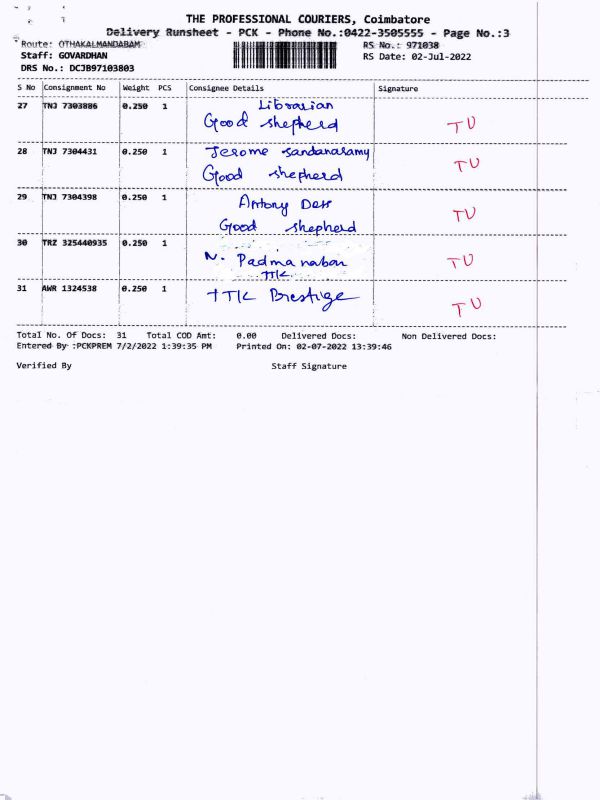 THE PROFESSIONAL COURIERS, Coimbatore
Delivery Runsheet - PCK - Phone No.:0422-3505555 - Page No.:3
Route: OTHAKALMANDABAM RS No.: 971038
Staff: GOVARDHAN RS Date: 02-Jul-2022
DRS No.: DCJB97103803
S No Consignment No Weight PCS Consignee Details Signature
27 TNJ 7303886 0.250 1 Librarian
Good shepherd TU
28 TNJ 7304431 0.250 1 Jerome sandanasamy
Good shepherd TU
29 TNJ 7304398 0.250 1 Antony Dass
Good shepherd TU
30 TRZ 325440935 0.250 1 N. Padmanaban TU
TTK
31 AWR 1324538 0.250 1 TTK Prestige TU
Total No. Of Docs: 31 Total COD Amt: 0.00 Delivered Docs: Non Delivered Docs:
Entered By :PCKPREM 7/2/2022 1:39:35 PM Printed On: 02-07-2022 13:39:46
Verified By Staff Signature